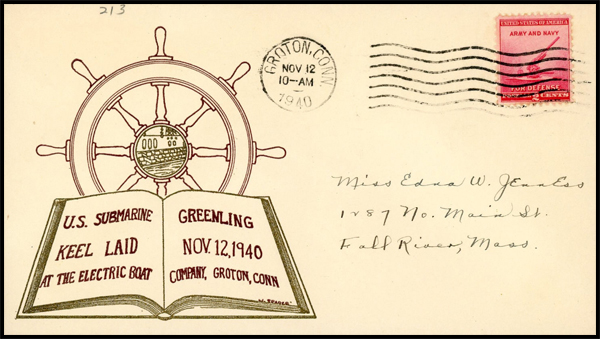 213
GROTON, CONN.
NOV 12
10-AM
1940
UNITED STATES OF AMERICA
ARMY AND NAVY
FOR DEFENSE
2 CENTS
U.S. SUBMARINE GREENLING
KEEL LAID NOV. 12, 1940
AT THE ELECTRIC BOAT COMPANY, GROTON, CONN
Miss Edna W. Jenness
1287 No. Main St.
Fall River, Mass.